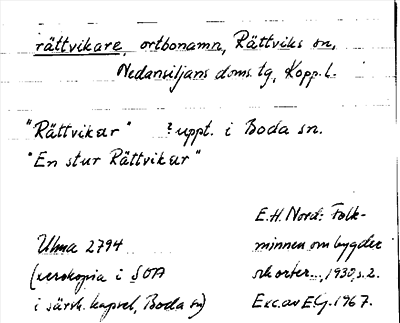 rättvikare, ortbonamn, Rättviks sn,
Nedansiljans doms. tg, Kopp. l.
"Rättvikar" ? uppt. i Boda sn.
"En stur Rättvikar"
Ulma 2794
(xerokopia i SOA
i särsk. kapsel, Boda sn)
E.H. Nord: Folk-
minnen om bygder
och orter..., 1930, s. 2.
Exc. av EG. 1967.